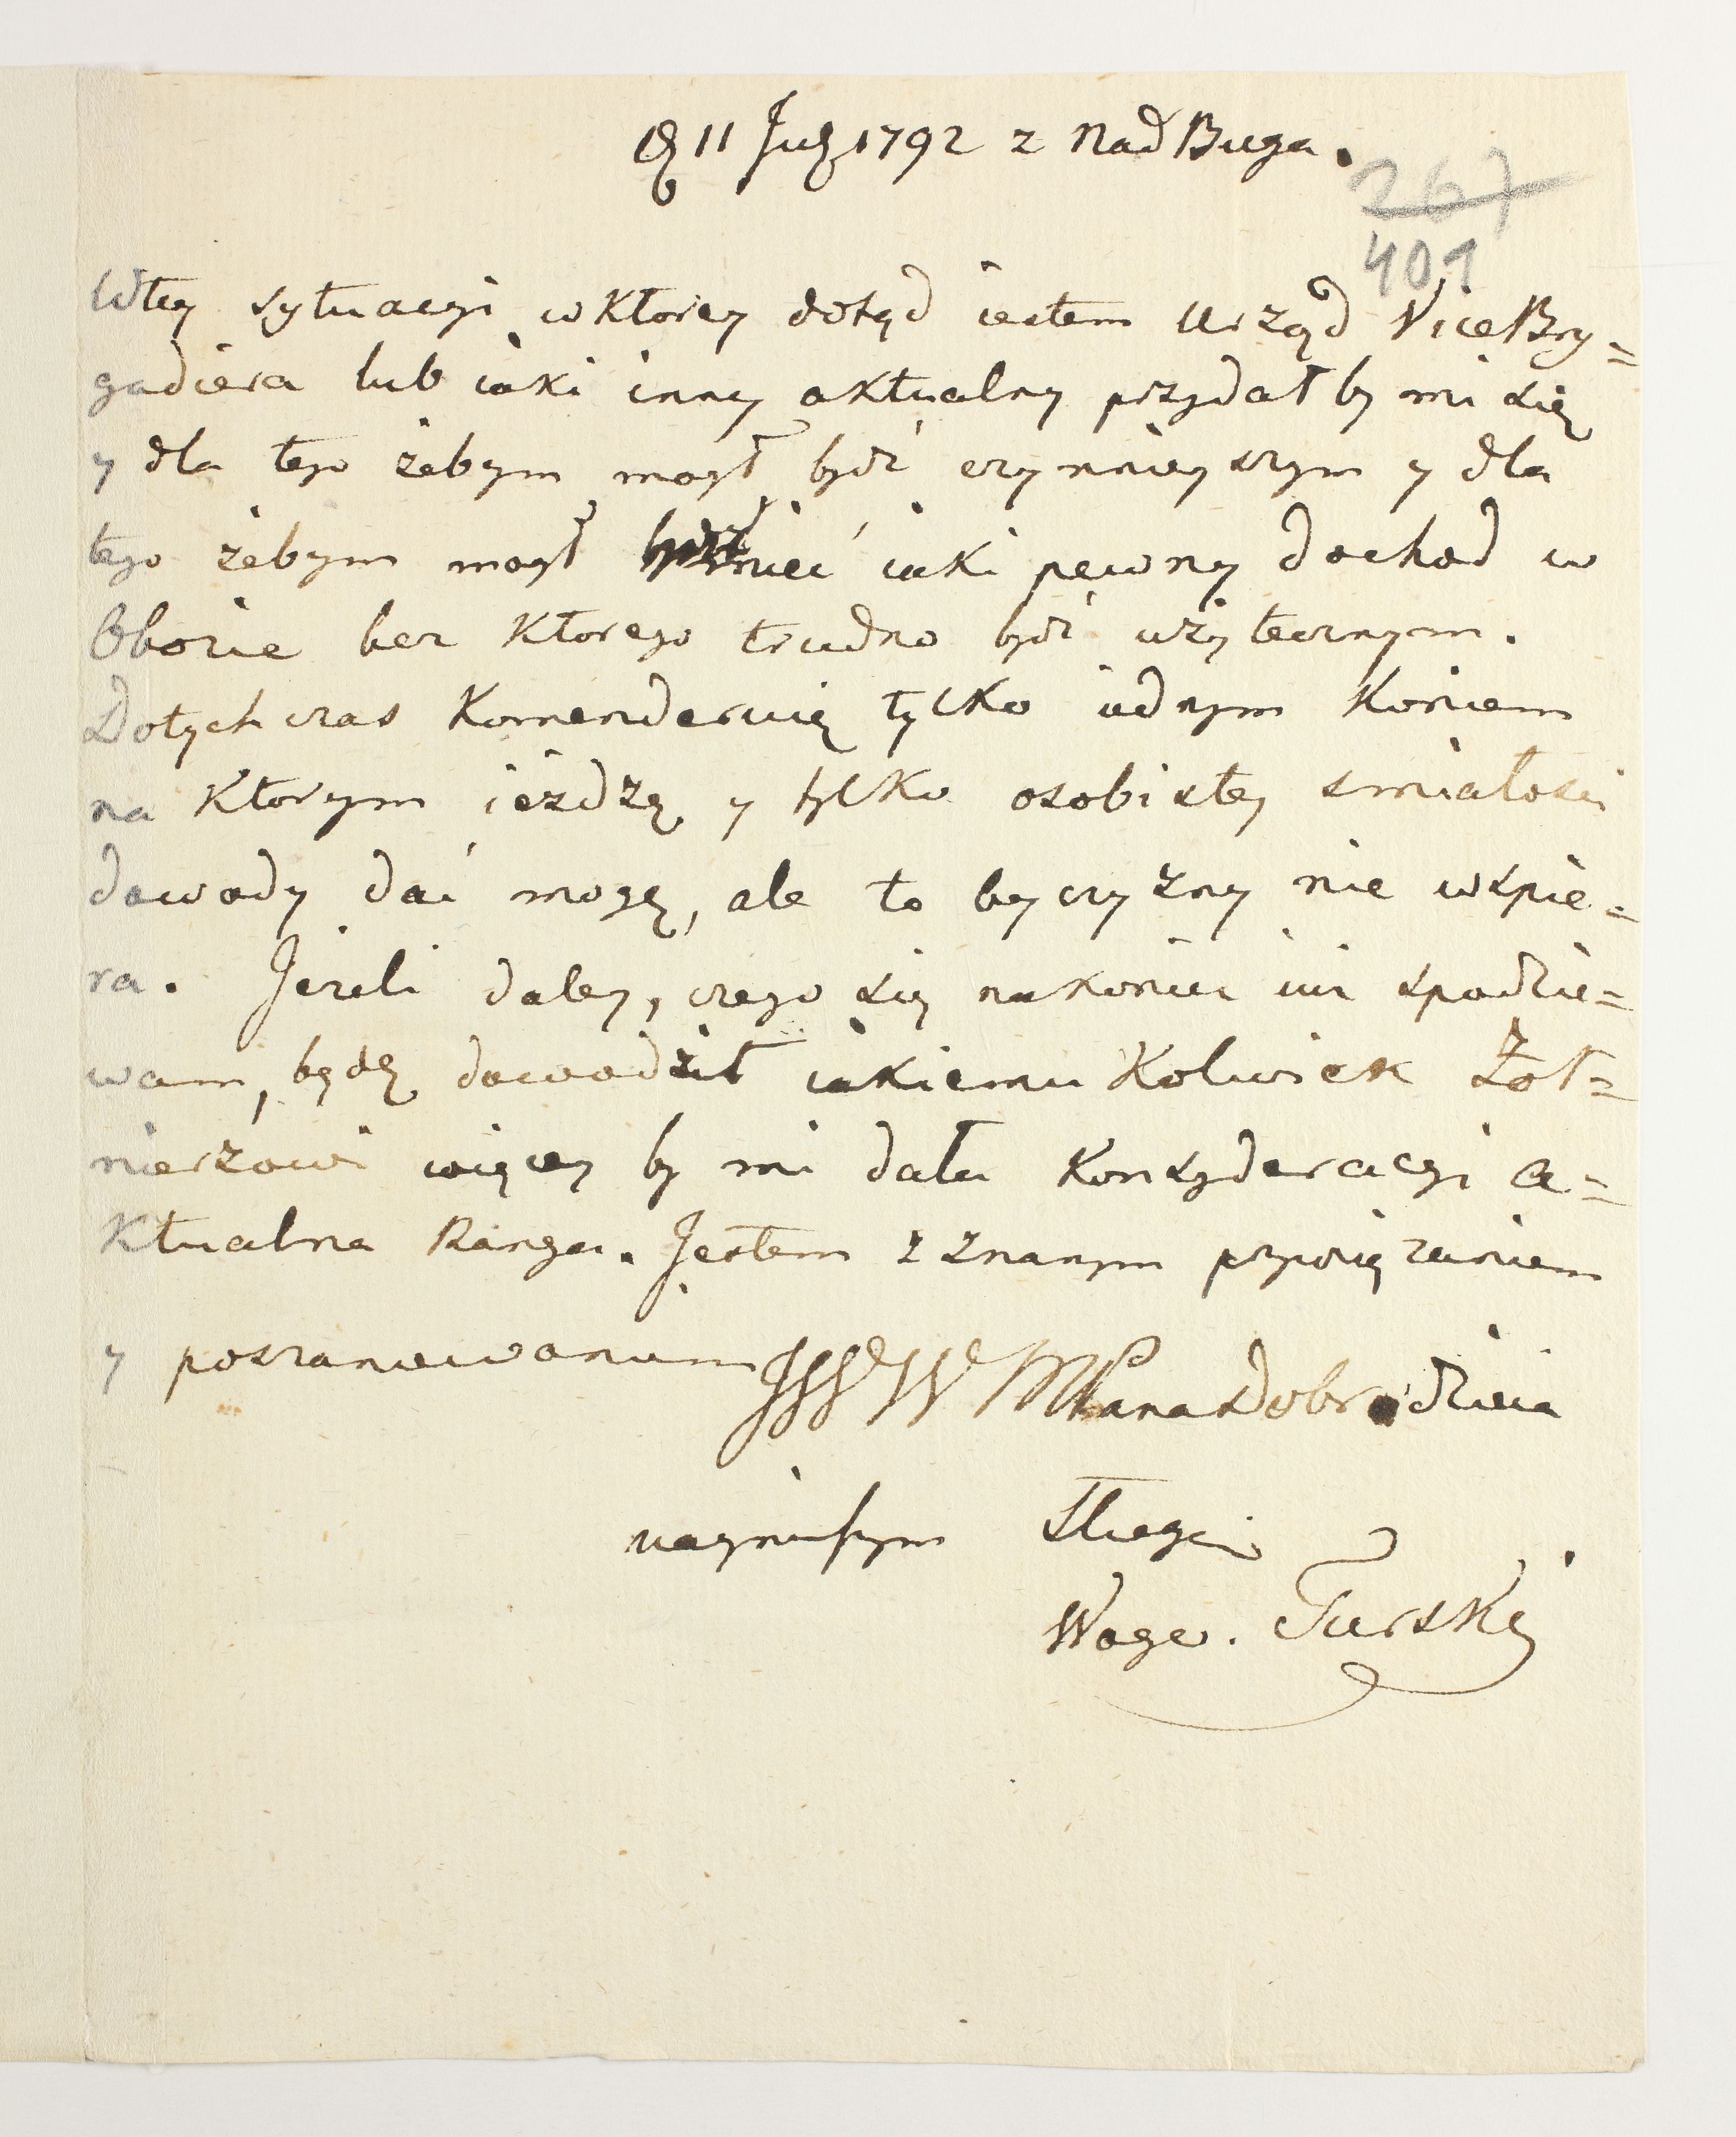 D 11 Julij 1792 z nad Buga.
267
401
W tey sytuacyi w ktorey dotąd iestem Urząd Vice Bry=
gadiera lub iaki inny aktualny przydał by mi się
y dla tego żebym mogł bydź czynnieyszym y dla
tego żebym mogł mieć iaki pewny dochod w
Obozie bez ktorego trudno bydź użytecznym.
Dotychczas komenderuię tylko iednym koniem
na ktorym ieżdżę y tylko osobistey smiałosci
dowody dać mogę, ale to Oyczyzny nie wspie=
ra. Jezeli daley, czego się nakoniec iuż spodzie=
wam, będę dowodził iakiemu kolwiek Żoł=
nierzowi więcey by mi dała konsyderacyi a=
ktualna Ranga. Jestem z znanym przywiązaniem
y poszanowaniem JW W M Pana Dobrodzieia
nayniższym Sługą
Woyc. Turski